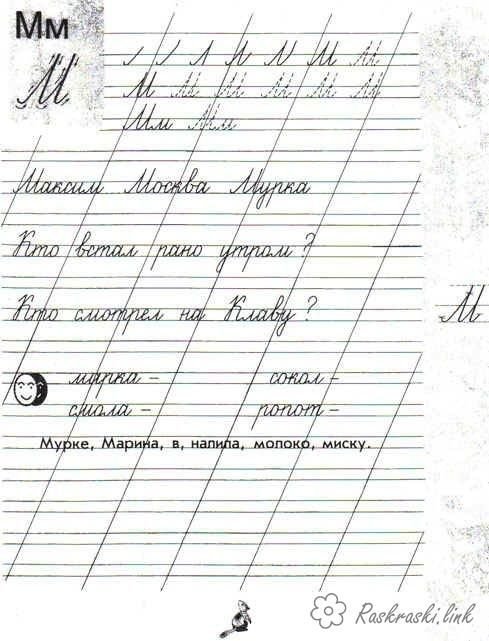 Мм
М
М М М М М М
Мм Мм
Максим Москва Мурка
Кто встал рано утром?
Кто смотрел на Клаву?
М
марка – сокол –
смола – ропот –
Мурке, Марина, в, налила, молоко, миску.
Raskraski.link